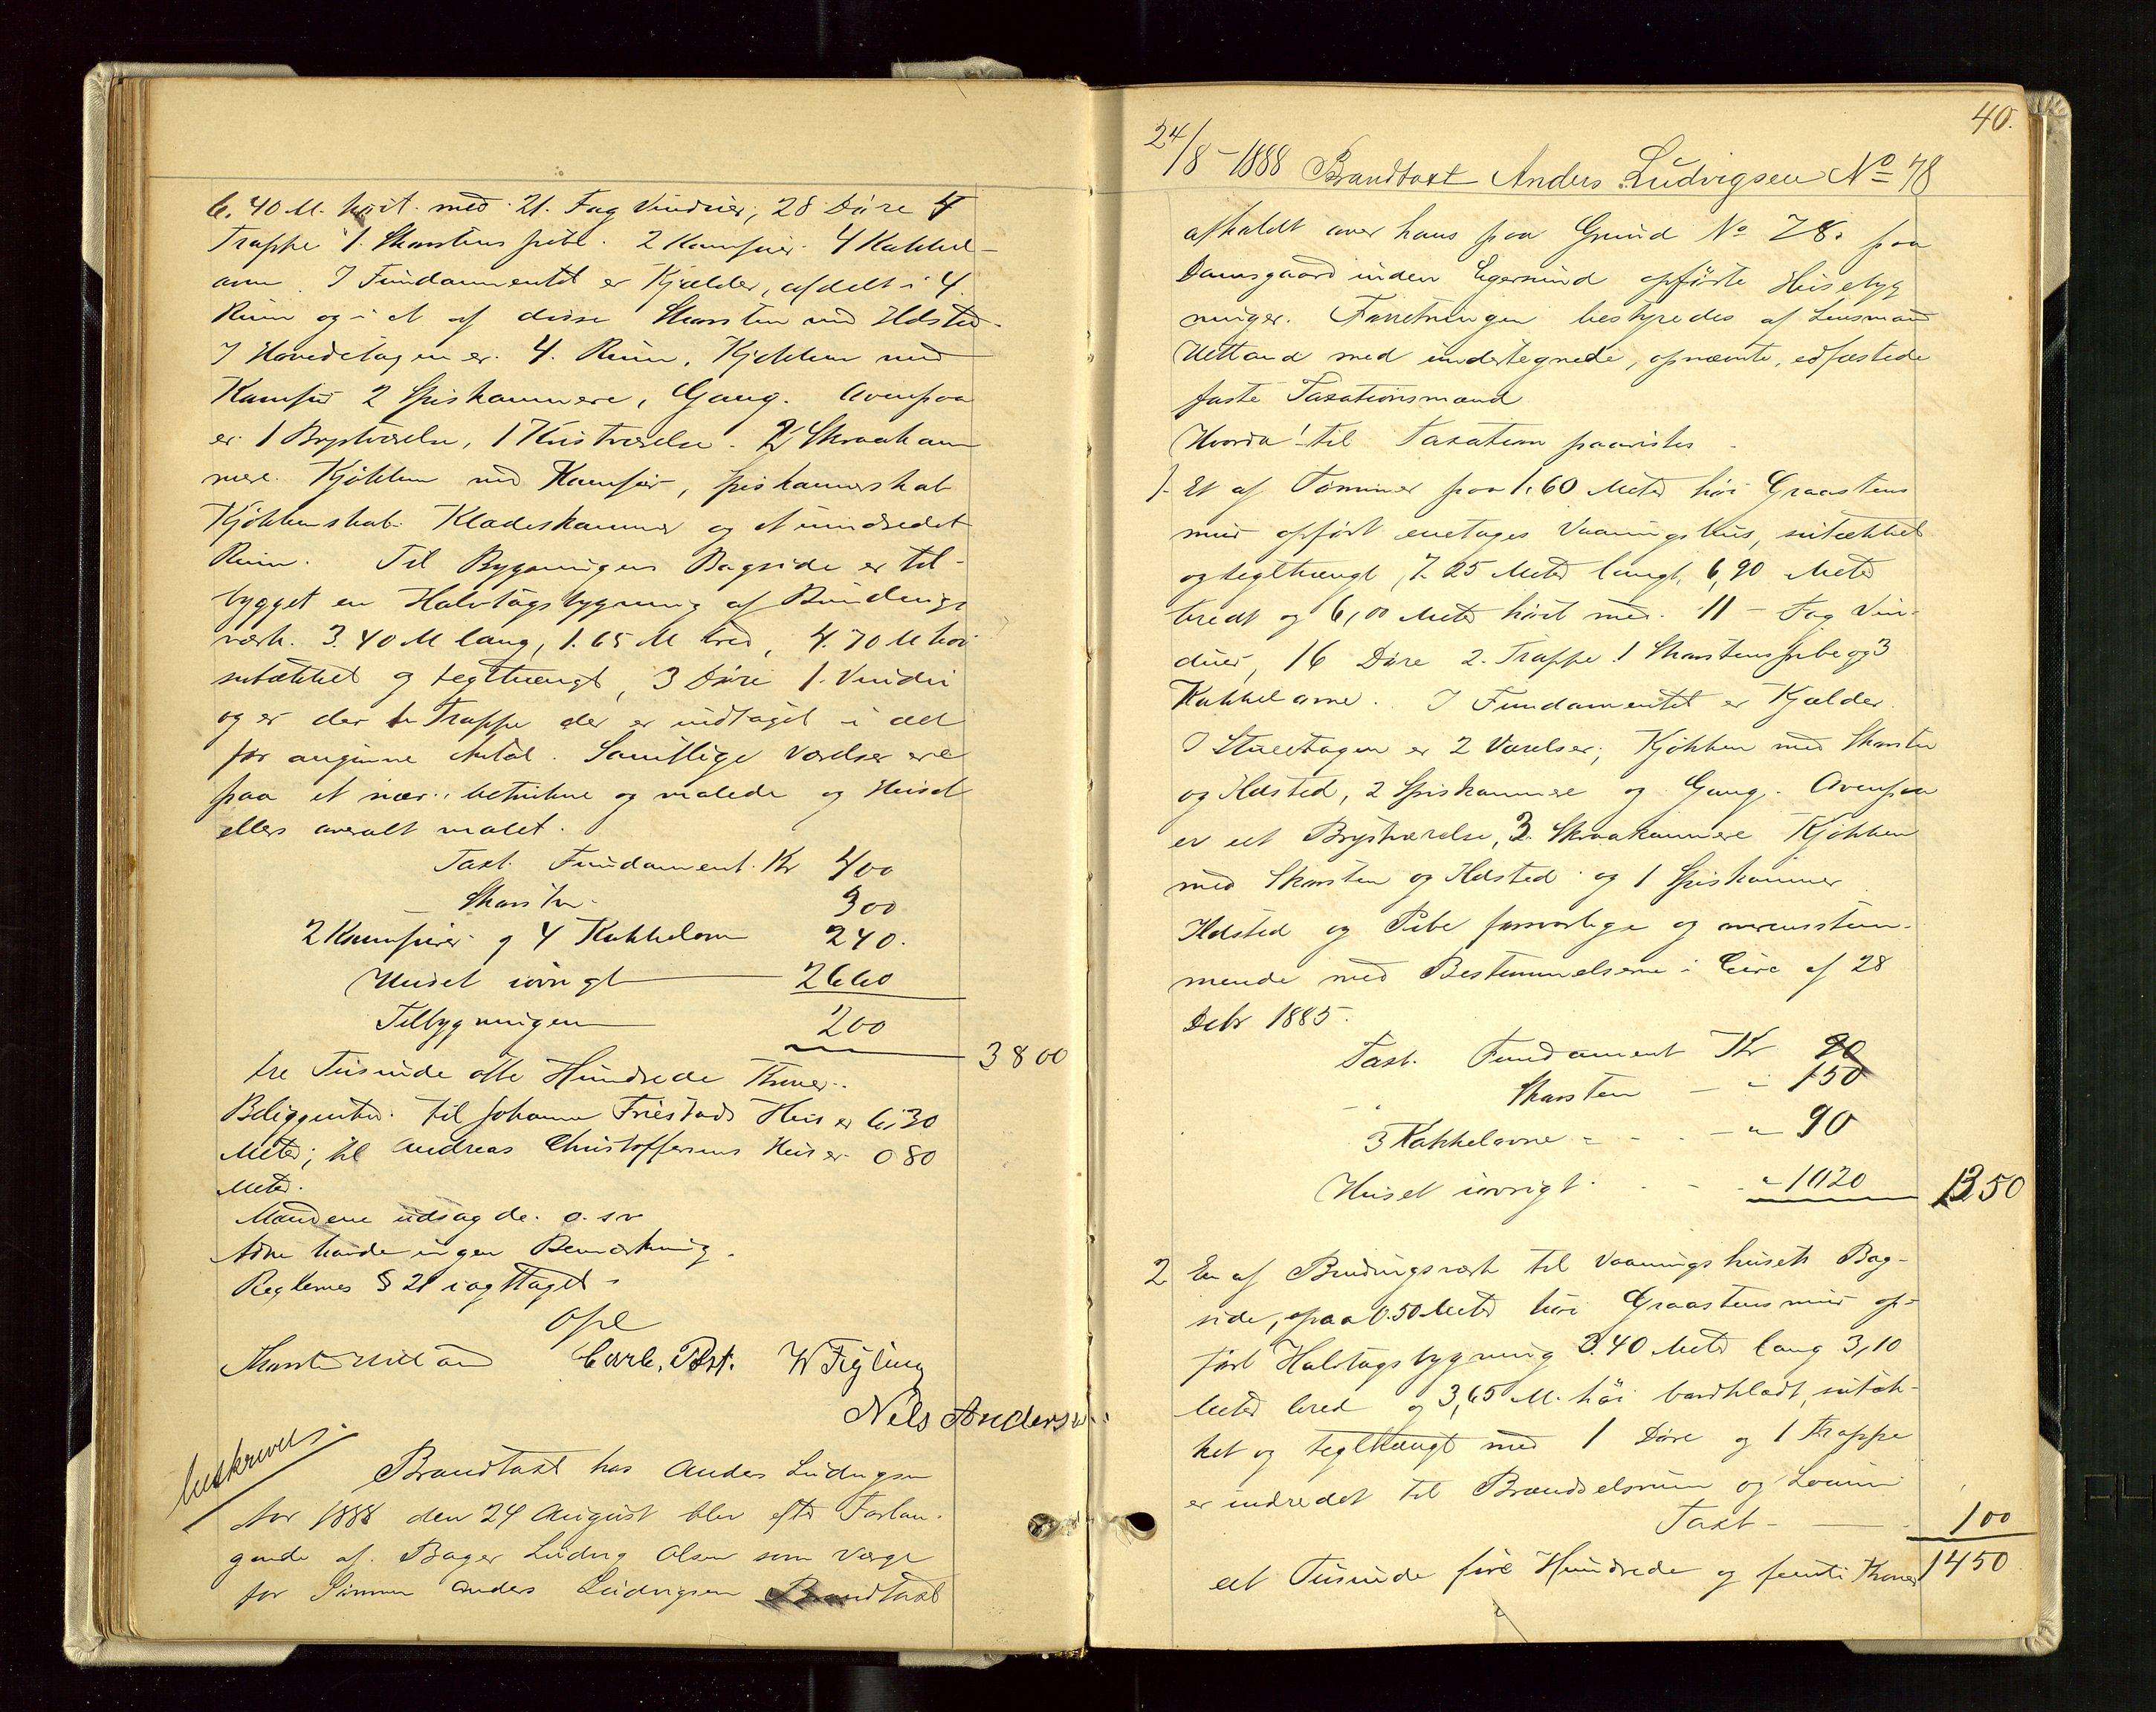 6.40 M. höit med 21. Fag Vinduer, 28 Döre 4
Trappe 1. Skorstenspibe. 2 Komfuir. 4 Kakkel-
ovn. I Fundamentet er Kjælder, afdelt i 4
Rum og i et af disse Skorsten med Ildsted.
I Hovedetagen er. 4. Rum, Kjökken med
Komfur 2 Spiskammere, Gang. Ovenpaa
er 1 Brystværelse, 1 Kvistværelse. 2 Skraakam
mere. Kjökken med Komfuir, spiskammerskab
Kjökkenskab. Klædeskammer og et uindredet
Rum. Til Bygningens Bagside er til-
bygget en Halvtagsbygning af Bindings
værk. 3.40 M lang, 1.65 M bred, 4.70 M höi
sutækket og teglhængt, 3 Döre 1. Vindu
og er der 1 Trappe der er indtaget i det
før angivne Antal. Samtlige Værelser ere
paa et nær.. betrukne og malede og Huset
ellers overalt malet.
Taxt. Fundament. Kr 400
Skorsten. 300
2 Komfuirer og 4 Kakkelovn 240.
Huset iövrigt 2660
Tilbygningen 200
3800
tre Tusinde otte Hundrede Kroner..
Beliggenhed. til Johanne Friestads Hus er 6,30
Meter; til Andreas Christoffersens Hus er 0.80
Meter.
Mændene udsagde. o.s.v
havde ingen Bemærkning.
Reglernes § 21 iagttaget.
Opl
Carl. Post. W Feyling
Nils Andersen
beskreven.
Brandtaxt hos Anders Ludvigsen
Aar 1888 den 24 August blev efter Forlan-
gende af. Bager Ludvig Olsen som Værge
for Sönnen Anders Ludvigsen Brandtaxt
40.
24/8-1888 Brandtaxt Anders Ludvigsen No 78
afholdt over hans paa Grund No 78. paa
Damsgaard inden Egersund opförte Husebyg
ninger. Forretningen bestyredes af Lensmand
Hetland med undertegnede, opnævnte, edfæstede
faste Taxationsmænd
Hvorda! til Taxation paavistes.
1. Et af Tömmer paa 1.60 Meter höi Graastens
mur opfört enetages Vaaningshus, sutækket
og teglhængt, 7.25 Meter langt, 6,90 Meter
bredt og 6,00 Meter höit med. 11 - Fag Vin-
duer, 16 Döre 2. Trappe 1 Skorstenspibe og 3
Kakkelovne. I Fundamentet er Kjælder.
I Stueetagen er 2 Værelser, Kjökken med Skorsten
og Ildsted, 2 Spiskammere og Gang. Ovenpaa
er et Brystværelse, 3. Skraakammere Kjökken
med Skorsten og Ildsted og 1 Spiskammer
Ildsted og Pibe forsvarlige og overensstem-
mende med Bestemmelserne i Circ af 28
Debr 1885.
Taxt. Fundament Kr 90
Skorsten - " 150
3 Kakkelovne - - - " 90
Huset iövrigt. - - " 1020 1350
2 En af Bindingsværk til Vaaningshusets Bag-
side, paa 0.50 Meter höi Graastensmur op-
fört Halvtagsbygning 3.40 Meter lang 3,10
Meter bred og 3,65 M. höi bordklædt, sutæk-
ket og teglhængt med 1 Döre og 1 Trappe
er indredet til Brændselsrum og
Taxt - 100
et Tusinde fire Hundrede og femti Kroner 1450